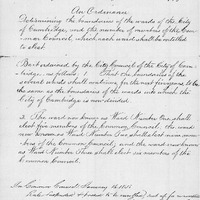 An Ordinance
Determining the boundaries of the wards of the City
of Cambridge, and the number of members of the Com-
mon Council, which each ward shall be entitled
to elect.
Be it ordained by the City Council of the City of Cam-
bridge, as follows: 1. That the boundaries of the
wards which shall
same as the boundaries of the wards into which the
City of Cambridge is now divided.
2. The ward now known as Ward Number One shall
elect five members of the Common Council; the ward
now known as Ward Number Two shall elect
members of the Common Council; and the ward now known
as Ward Number Three shall elect six members of the
Common Council.
In Common Council January